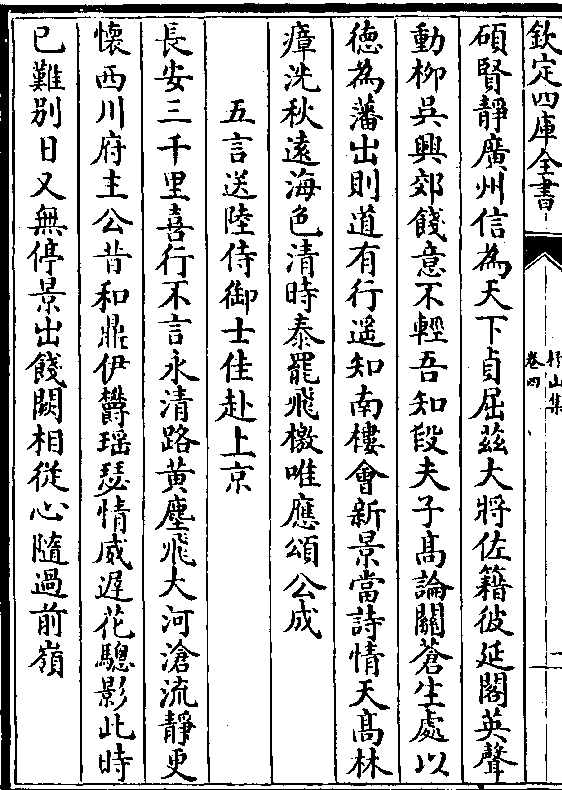 欽定四庫全書
杼山集
卷四
碩賢靜廣州信為天下貞屈茲大將佐籍彼延閣英聲
動柳吳興郊餞意不輕吾知段夫子高論關蒼生處以
徳為藩出則道有行遥知南樓會新景當詩情天高林
瘴洗秋遠海色清時泰罷飛檄唯應頌公成
五言送陸侍御士佳赴上京
長安三千里喜行不言永清路黄塵飛大河滄流靜更
懷西川府主公昔和鼎伊欝瑶瑟情威遲花驄影此時
已難別日又無停景出餞闕相從心隨過前嶺